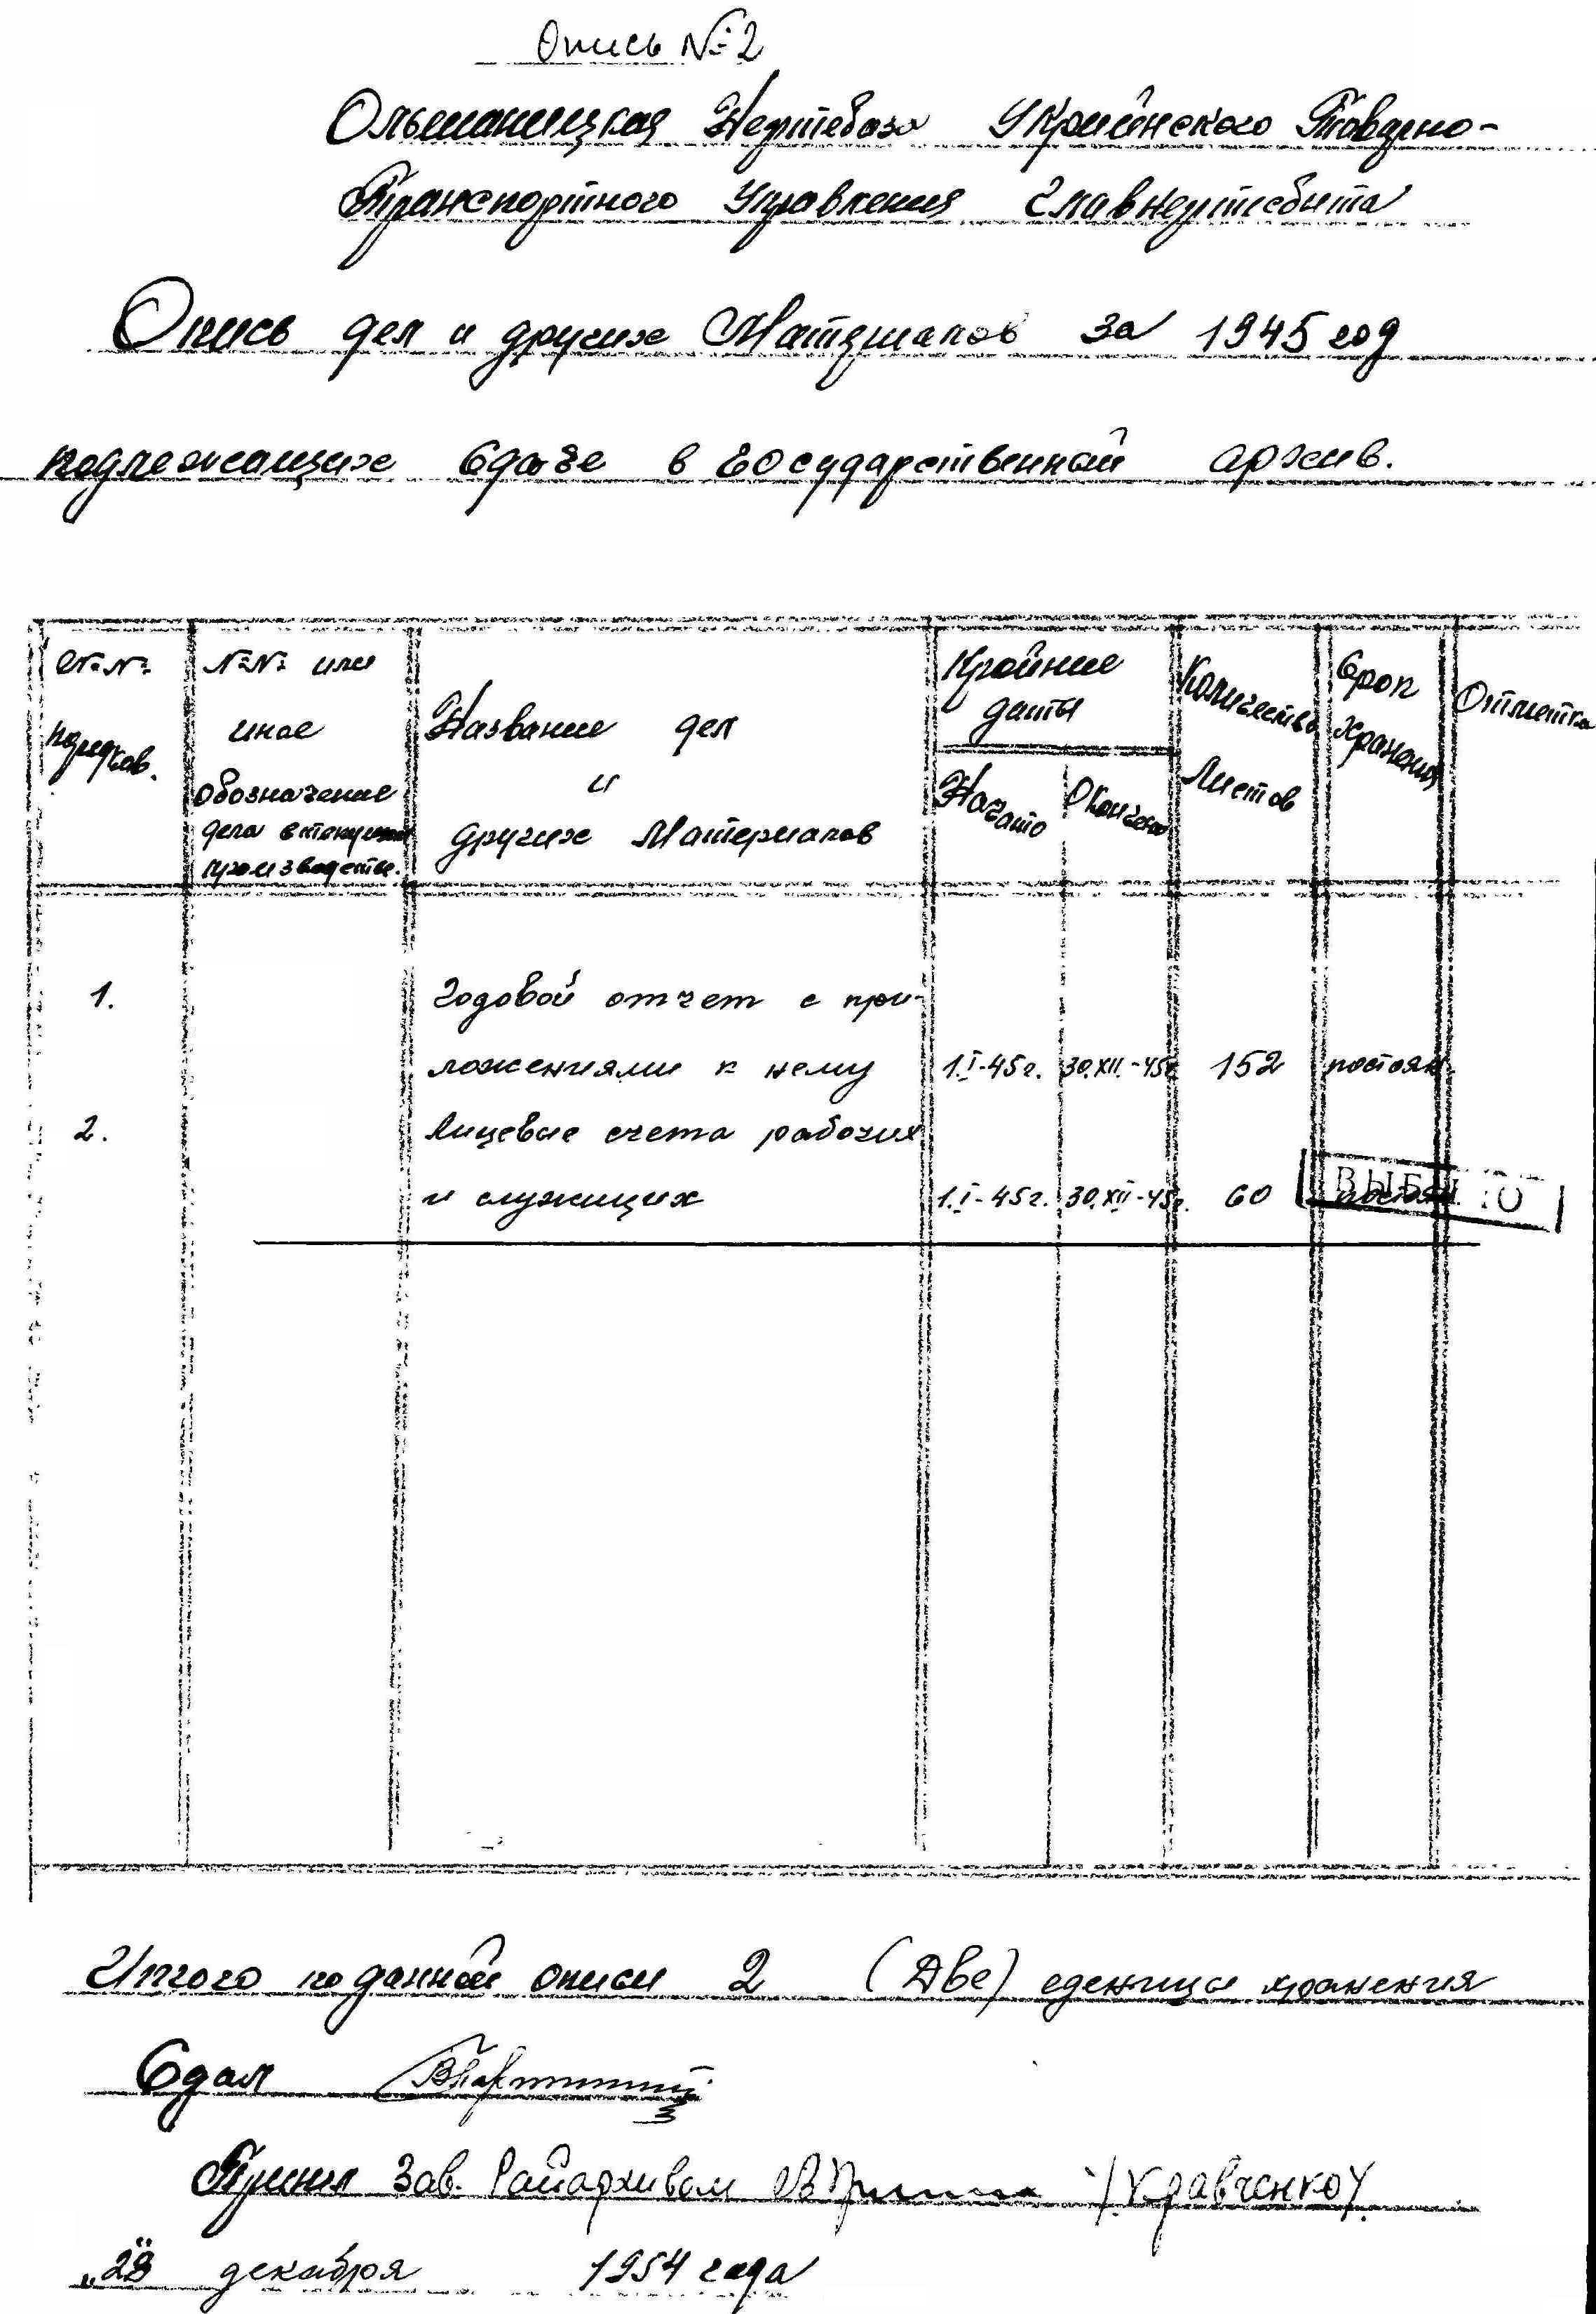 Опись №2
Ольшаницкая Нефтебаза Украинского Товарно-
Транспортного Управления Главнефтесбыта
Опись дел и других Материалов за 1945 год
подлежащих сдаче в государственный архив.
№№ порядков.
№№ или иное обозначение дела в текущем производстве.
Название дел и других Материалов
Крайние даты
Начато
Окончено
Количество Листов
Срок хранения
Отметка
1. Годовой отчет с при-
ложениями к нему 1.I-45г. 30.XII.-45г. 152 постоян.
2. Лицевые счета рабочих
и служищих 1.I-45г. 30.XII-45г. 60
ВЫБЫЛО
Итого по данной описи 2 (Две) еденицы хранения
Сдал
Принял Зав. Райархивом /Кравченко/
"28" декабря 1954 года